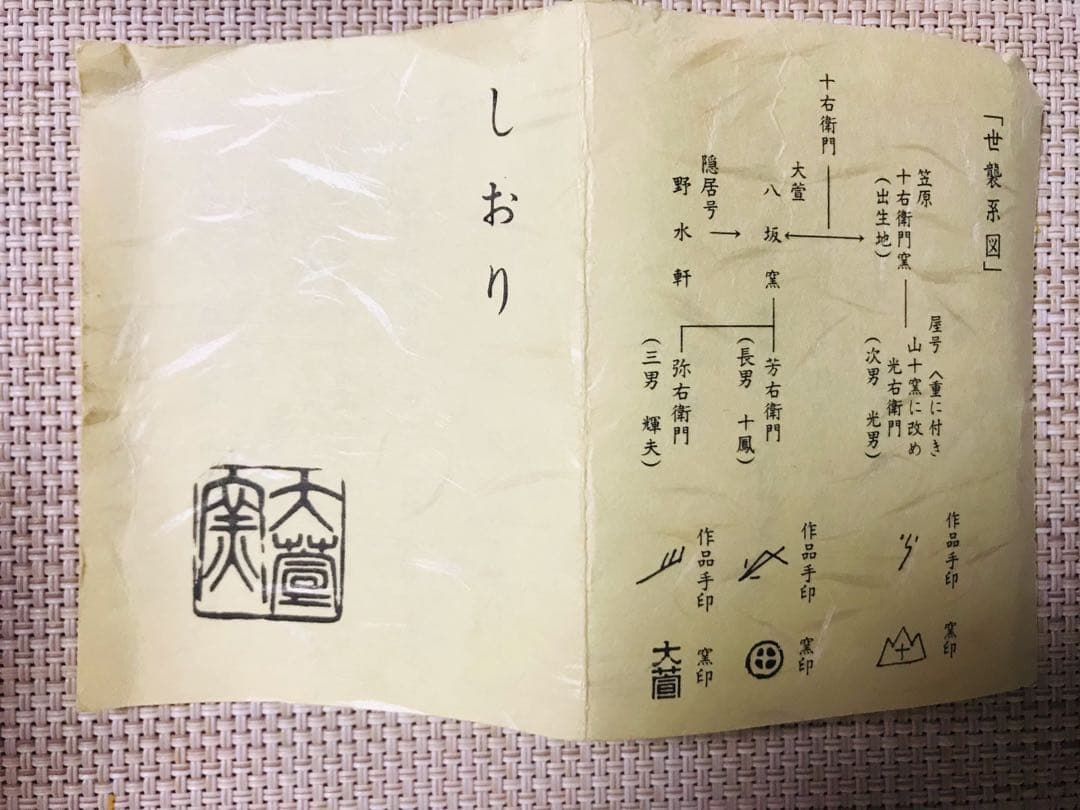 「世襲系図」
笠原
十右衛門窯
(出生地)
十右衛門
大萱
八坂窯
隠居号
野水軒
屋号 八重に付き
山十窯に改め
光右衛門
(次男 光男)
芳右衛門
(長男 十鳳)
弥右衛門
(三男 輝夫)
作品手印
窯印
十
作品手印
窯印
作品手印
窯印
大萱
しおり
大萱
窯